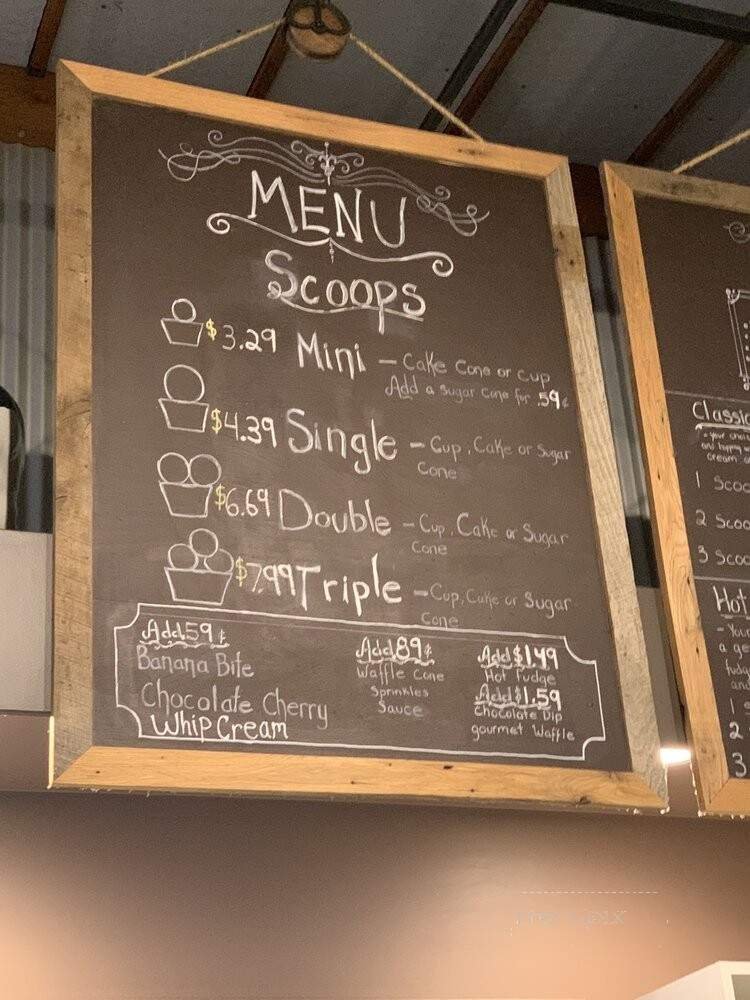 MENU
Scoops
$3.29 Mini – Cake Cone or Cup
Add a sugar cone for .59¢
$4.39 Single – Cup, Cake or Sugar
Cone
$6.69 Double – Cup, Cake or Sugar
Cone
$7.99 Triple – Cup, Cake or Sugar
Cone
Add .59¢
Banana Bite
Chocolate Cherry
Whip Cream
Add .89¢
Waffle Cone
Sprinkles
Sauce
Add $1.49
Hot Fudge
Add $1.59
Chocolate Dip
gourmet Waffle
Classic
1 Scoo
2 Scoo
3 Scoo
Hot
- You
a ge
fudg
and
1
2
3